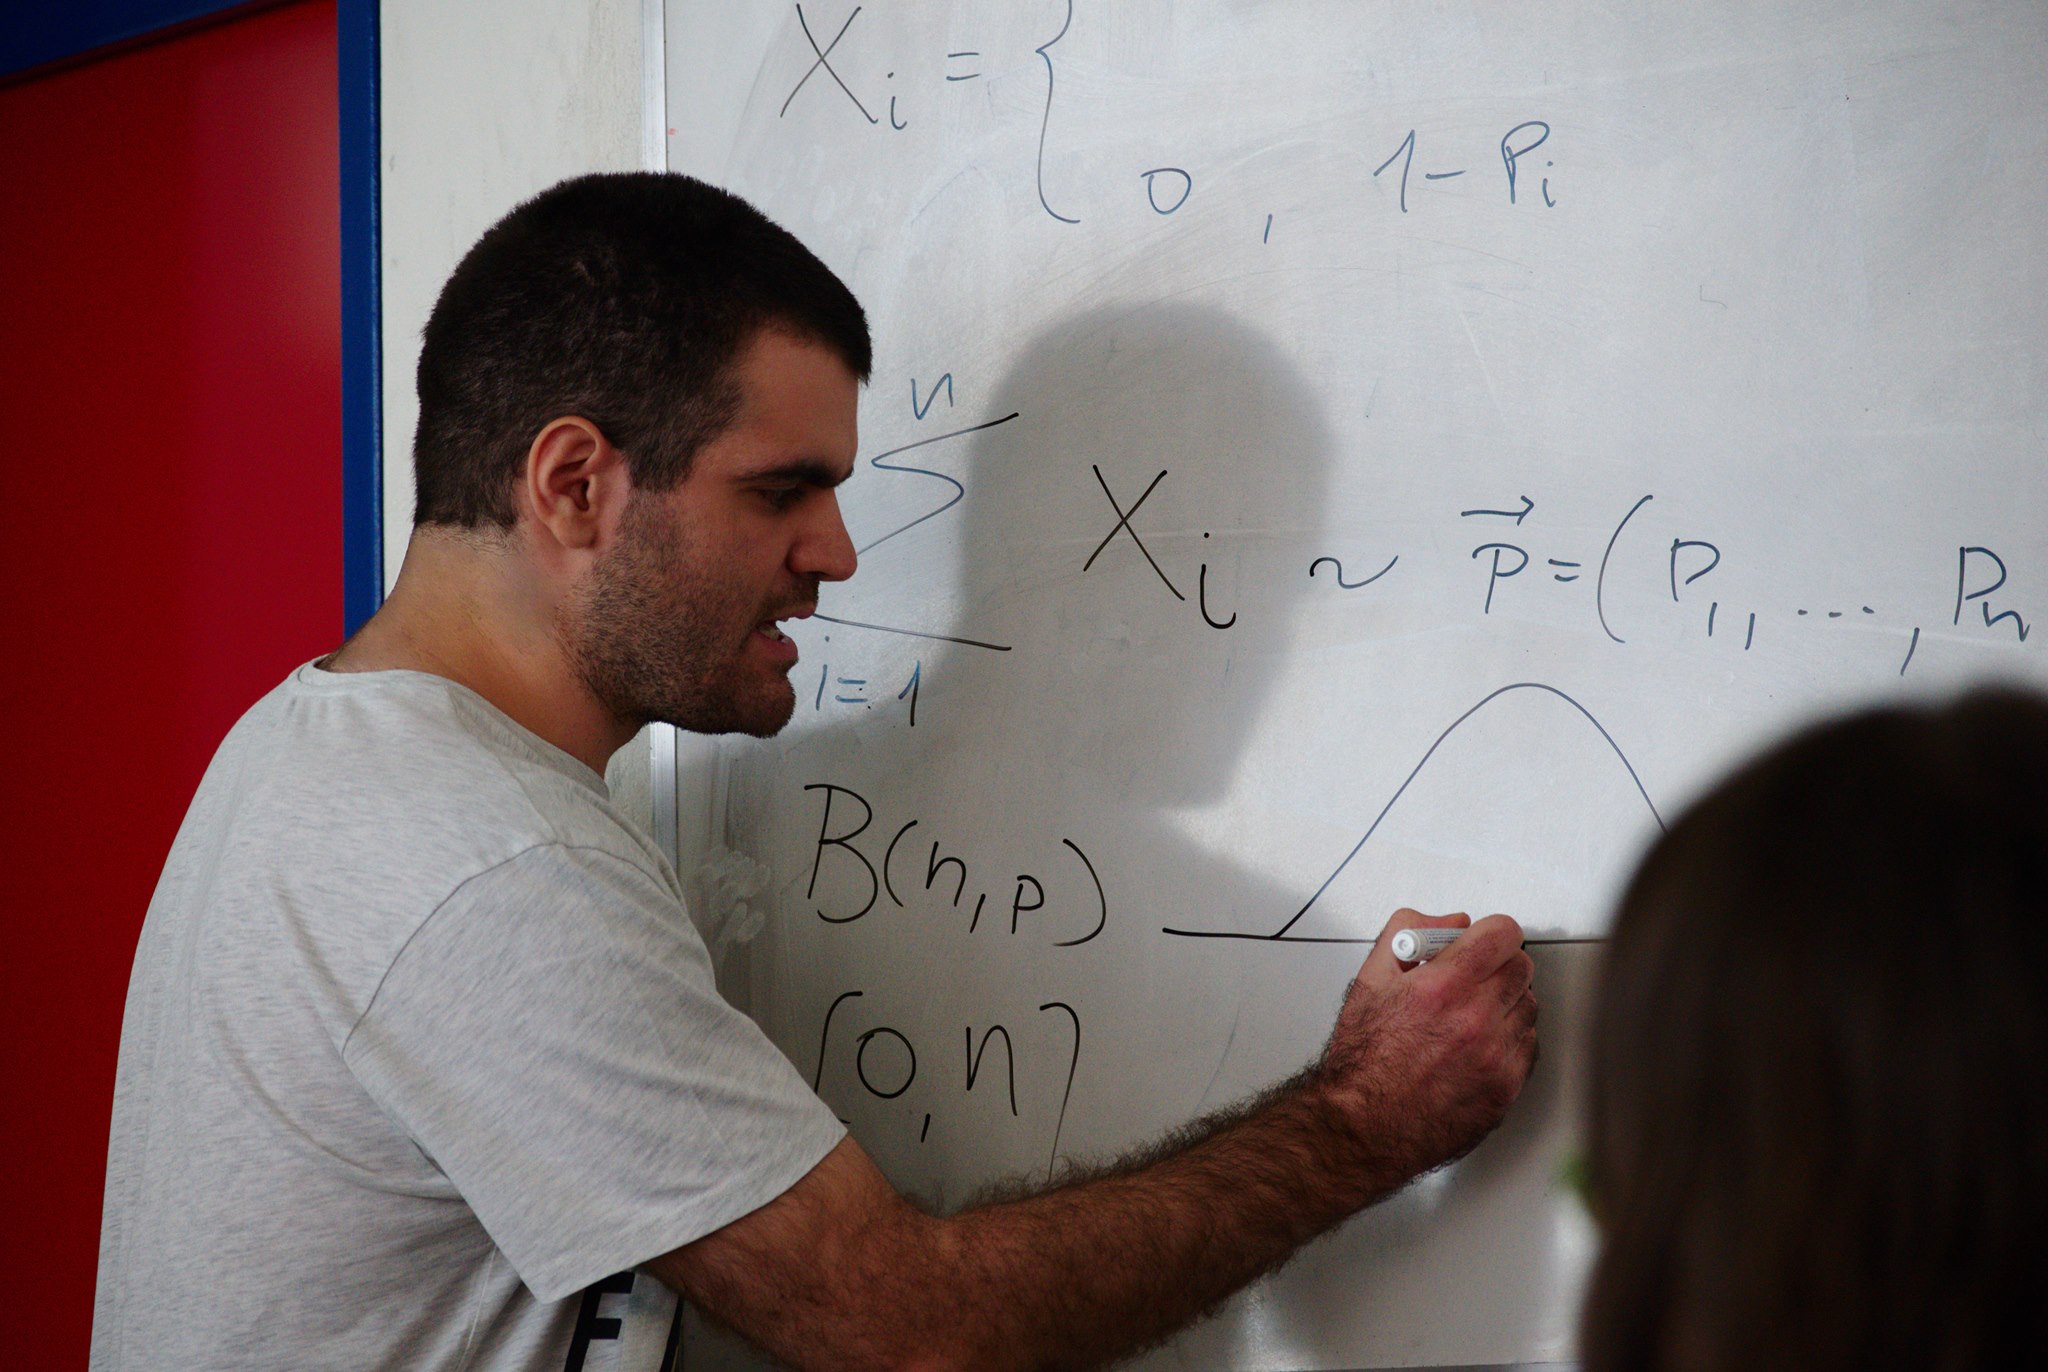 Xᵢ = {
0 , 1 - Pᵢ
n
∑ Xᵢ ~ P⃗ = (P₁, ..., Pₙ
i = 1
B(n, p)
[0, n]
F